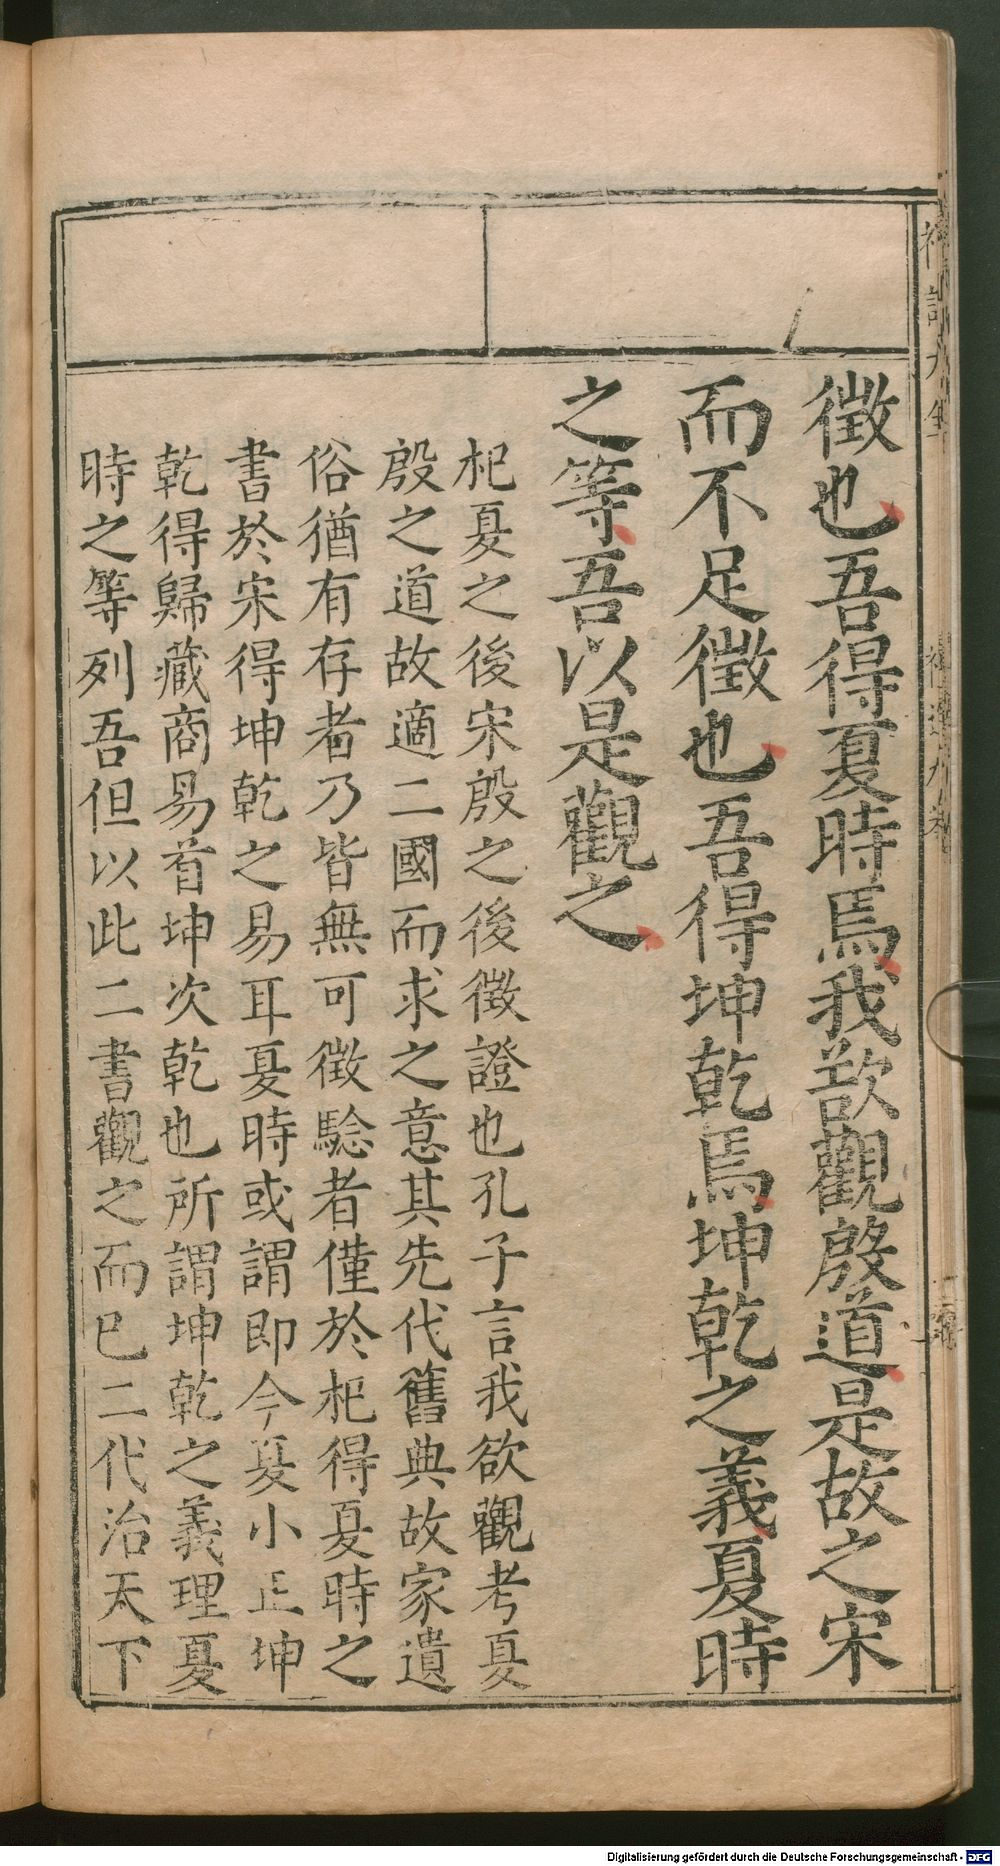 徵也吾得夏時焉我欲觀殷道是故之宋
而不足徵也吾得坤乾焉坤乾之義夏時
之等吾以是觀之
杞夏之後宋殷之後徵證也孔子言我欲觀考夏
殷之道故適二國而求之意其先代舊典故家遺
俗猶有存者乃皆無可徵驗者僅於杞得夏時之
書於宋得坤乾之易耳夏時或謂即今夏小正坤
乾得歸藏商易首坤次乾也所謂坤乾之義理夏
時之等列吾但以此二書觀之而已二代治天下
Digitalisierung gefördert durch die Deutsche Forschungsgemeinschaft - DFG